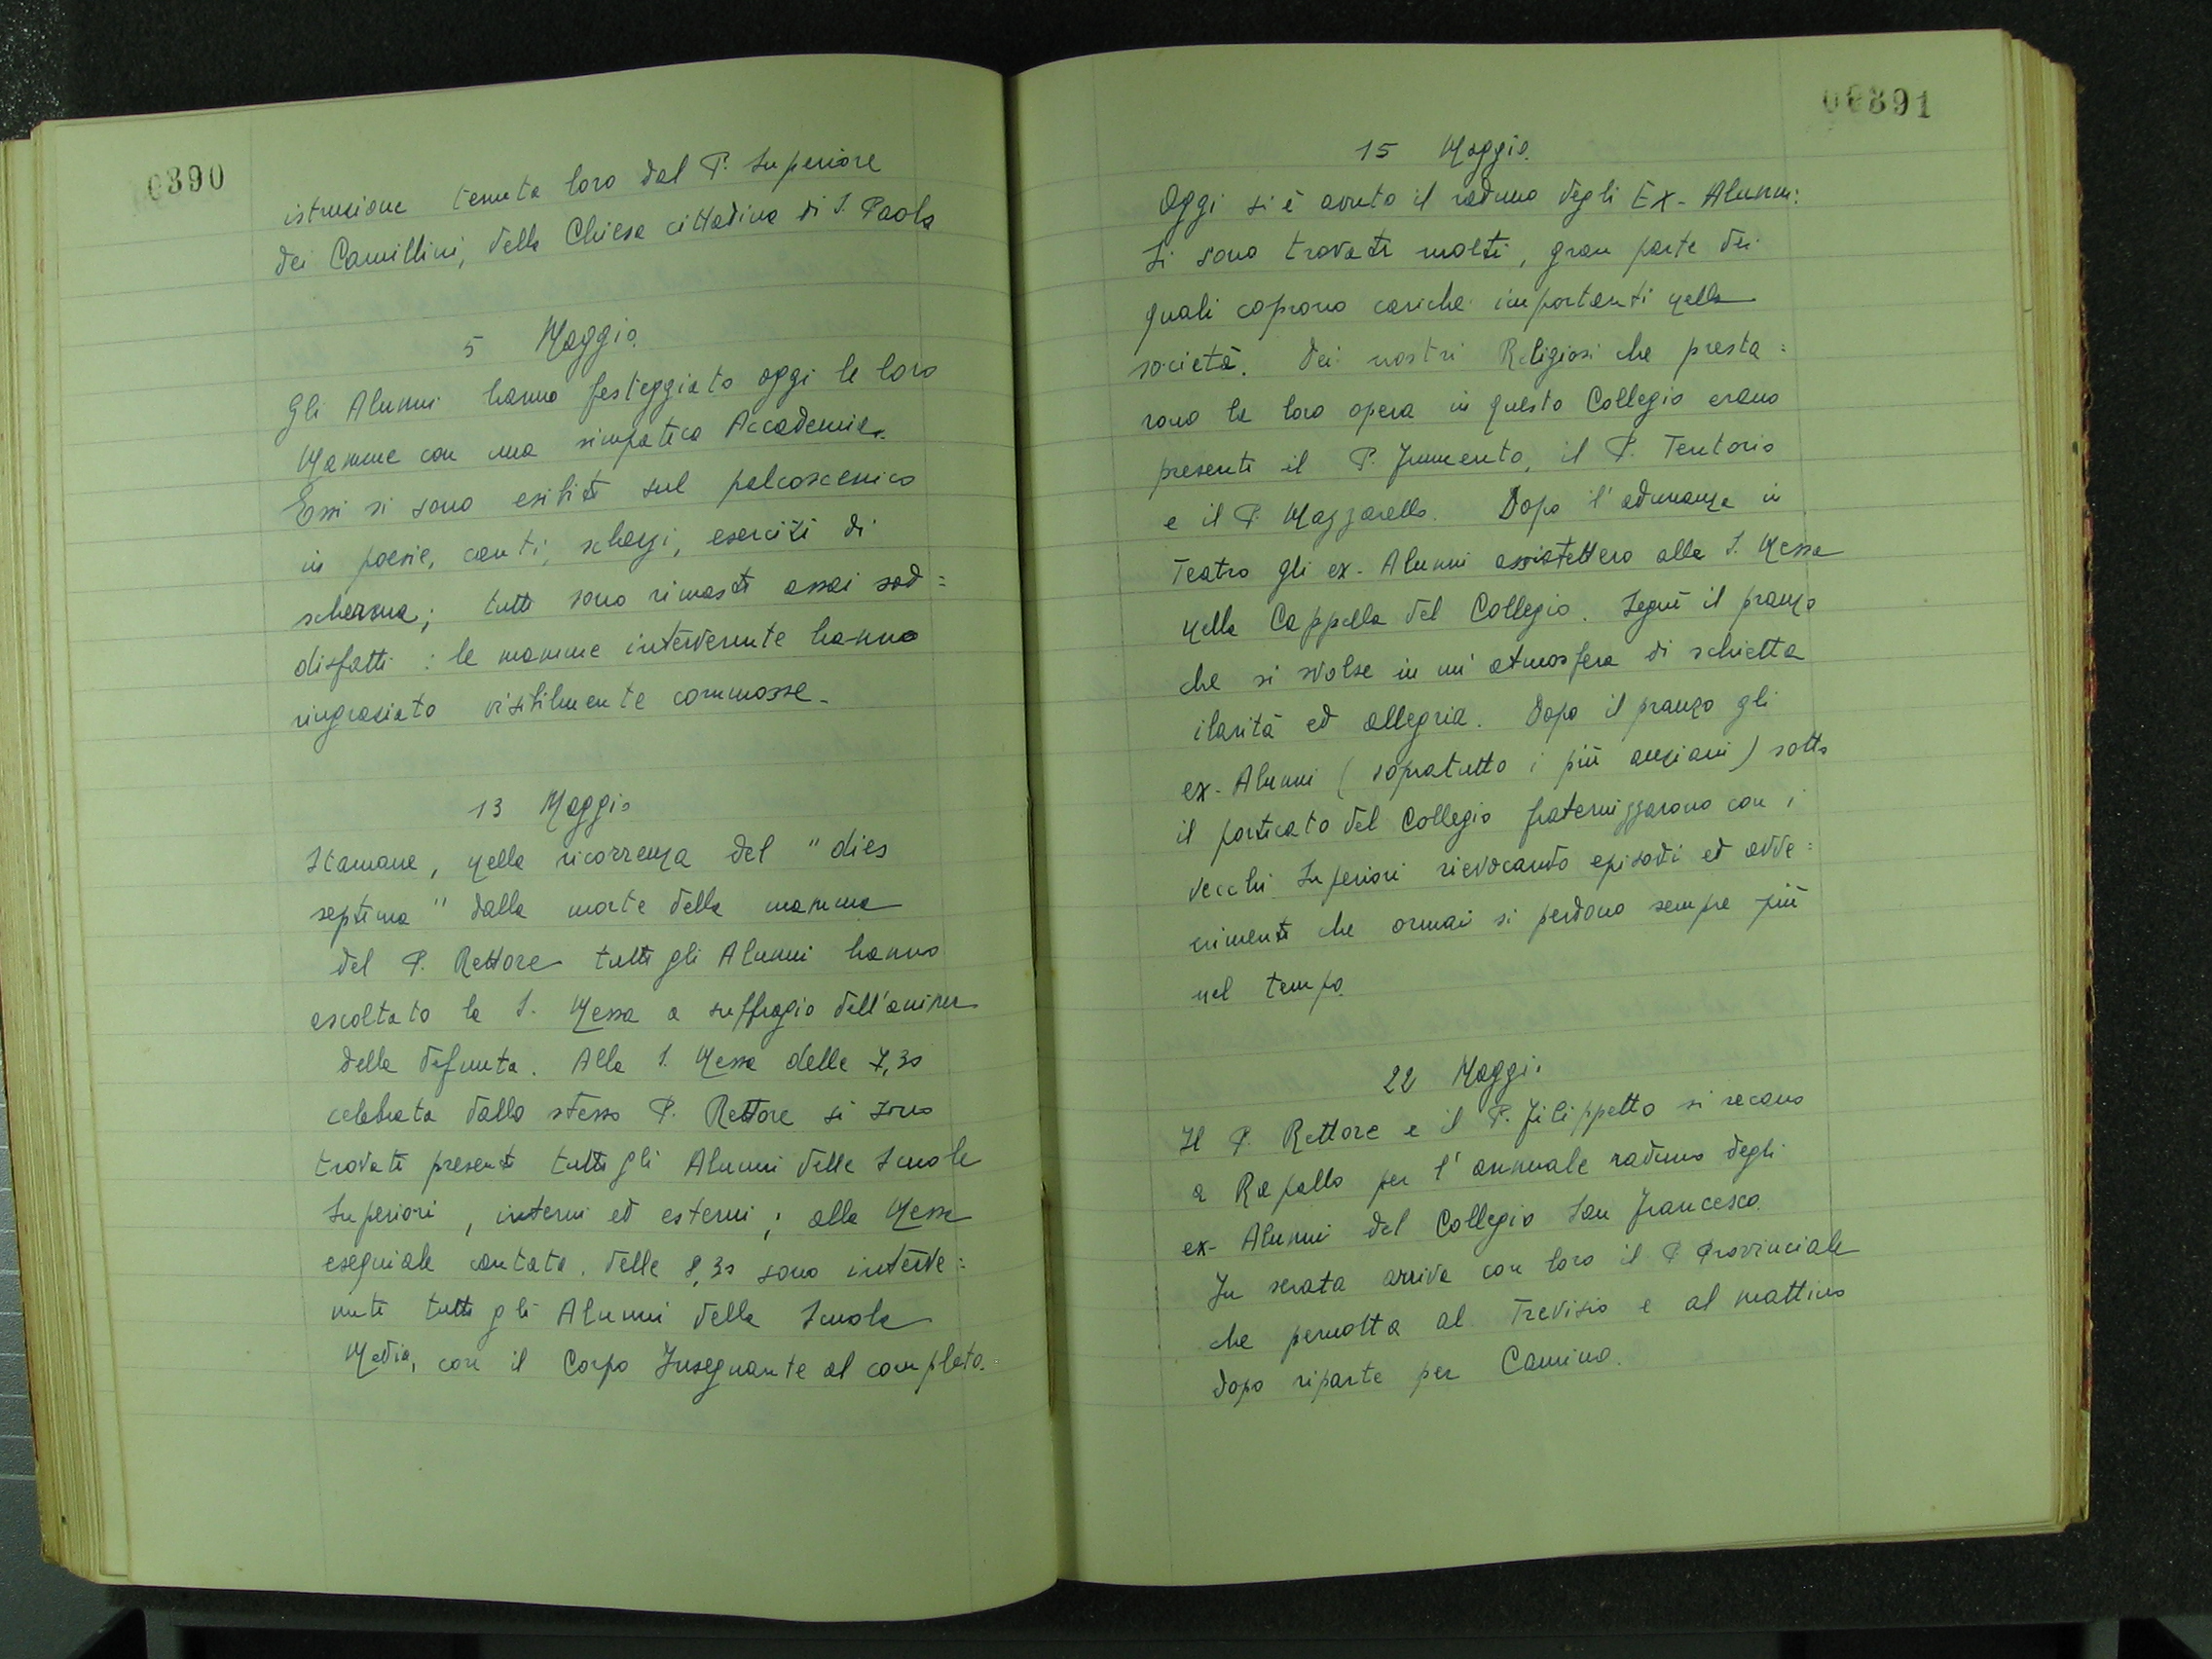 0390
istruzione tenuta loro dal P. Superiore
dei Camillini, della Chiesa cittadina di S. Paola
5 Maggio.
Gli Alunni hanno festeggiato oggi le loro
Mamme con una simpatica Accademia.
Essi si sono esibiti sul palcoscenico
in poesie, canti, scherzi, esercizi di
scherma; tutti sono rimasti assai sod=
disfatti: le mamme intervenute hanno
ringraziato visibilmente commosse.
13 Maggio
Stamane, nella ricorrenza del "dies
septima" dalla morte della mamma
del P. Rettore tutti gli Alunni hanno
ascoltato la S. Messa a suffragio dell'anima
della defunta. Alla S. Messa delle 7,30
celebrata dallo stesso P. Rettore si sono
trovati presenti tutti gli Alunni delle Scuole
Superiori, interni ed esterni; alla Messa
esequiale cantata. delle 8,30 sono interve=
nuti tutti gli Alunni della Scuola
Media, con il Corpo Insegnante al completo.
00391
15 Maggio.
Oggi si è avuto il raduno degli Ex-Alunni:
Si sono trovati molti, gran parte dei
quali coprono cariche importanti nella
società. Dei nostri Religiosi che presta=
rono la loro opera in questo Collegio erano
presenti il P. Frumento, il P. Tentorio
e il P. Mazzarello. Dopo l'adunanza in
Teatro gli ex-Alunni assistettero alla S. Messa
nella Cappella del Collegio. Seguì il pranzo
che si svolse in un'atmosfera di schietta
ilarità ed allegria. Dopo il pranzo gli
ex-Alunni (sopratutto i più anziani) sotto
il porticato del Collegio fraternizzarono con i
vecchi Superiori rievocando episodi ed avve=
nimenti che ormai si perdono sempre più
nel tempo.
22 Maggio
Il P. Rettore e il P. Filippetto si recano
a Rapallo per l'annuale raduno degli
ex-Alunni del Collegio San Francesco.
In serata arriva con loro il P. Provinciale
che pernotta al Trevisio e al mattino
dopo riparte per Camino.